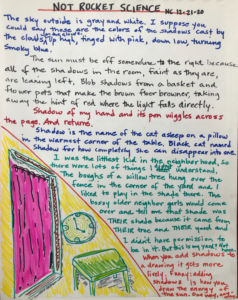 NOT ROCKET SCIENCE
The sky outside is gray and white. I suppose you
could say those are the colors of the shadows cast by
the clouds, up high, tinged with pink, down low, turning
smoky blue.
The sun must be off somewhere to the right because
all of the shadows in this room, faint as they are,
are leaning left. Blob shadows from a basket and
flower pots that make the brown floor browner, taking
away the hint of red where the light falls directly.
Shadow of my hand and its pen wiggles across
the page. And returns.
Shadow is the name of the cat asleep on a pillow
in the warmest corner of the table. Black cat named
Shadow for how completely she can disappear into one.
I was the littlest kid in the neighborhood, so
there were lots of things I didn't understand.
The boughs of a willow tree hung over the
fence in the corner of the yard and I
liked to play in the shade there. The
bossy older neighbor girls would come
over and tell me that shade was
THEIR shade because it came from
THEIR tree and THEIR yard and
I didn't have permission to
be in it. But this is my yard! Hey
When you add shadows to
a drawing it gets more
lively. Funny: adding
shadows is how you
draw the energy of
the sun.